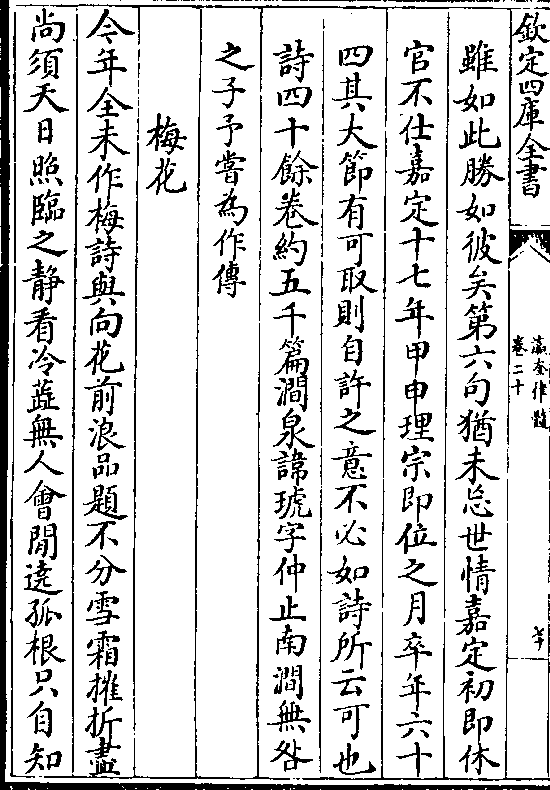 欽定四庫全書
瀛奎律髓
卷二十
雖如此勝如彼矣第六句猶未忘世情嘉定初即休
官不仕嘉定十七年甲申理宗即位之月卒年六十
四其大節有可取則自許之意不必如詩所云可也
詩四十餘卷約五千篇澗泉諱琥字仲止南澗無咎
之子予嘗為作傳
梅花
今年全未作梅詩與向花前浪品題不分雪霜摧折盡
尚須天日照臨之静看冷蘂無人會閒遶孤根只自知